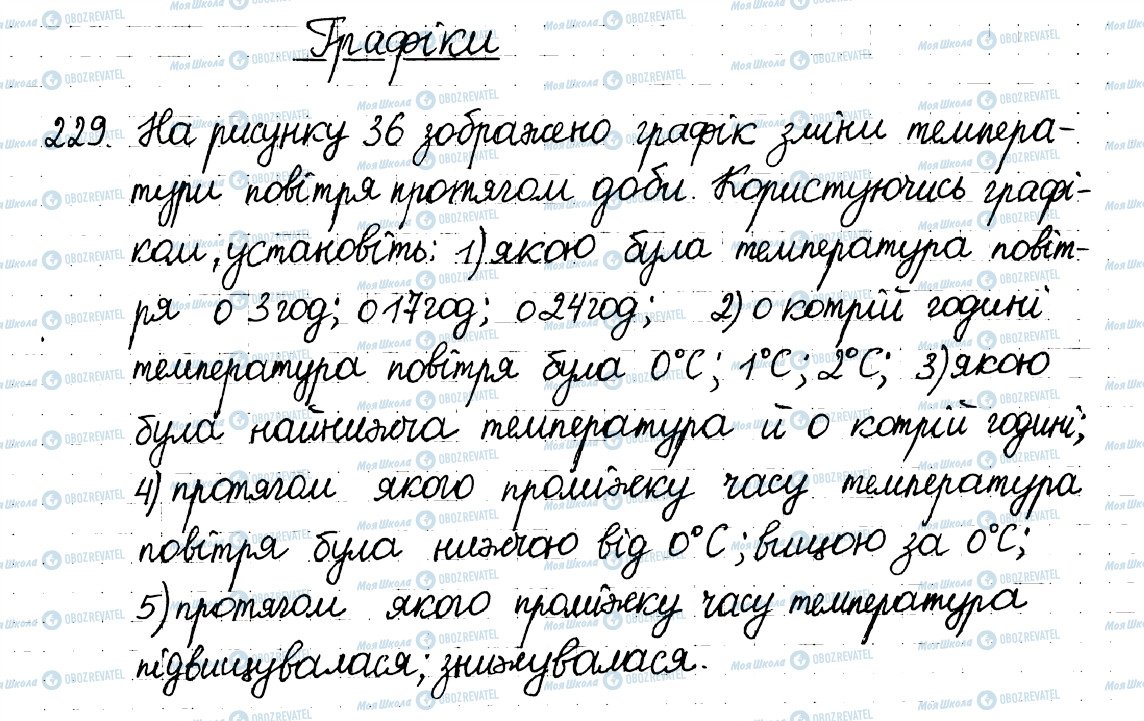 Графіки
229. На рисунку 36 зображено графік зміни темпера-
тури повітря протягом доби. Користуючись графі-
ком, установіть: 1) якою була температура повіт-
ря о 3 год; о 17 год; о 24 год; 2) о котрій годині
температура повітря була 0°С; 1°С; 2°С; 3) якою
була найнижча температура й о котрій годині;
4) протягом якого проміжку часу температура
повітря була нижчою від 0°С; вищою за 0°С;
5) протягом якого проміжку часу температура
підвищувалася; знижувалася.
МояШкола OBOZREVATEL